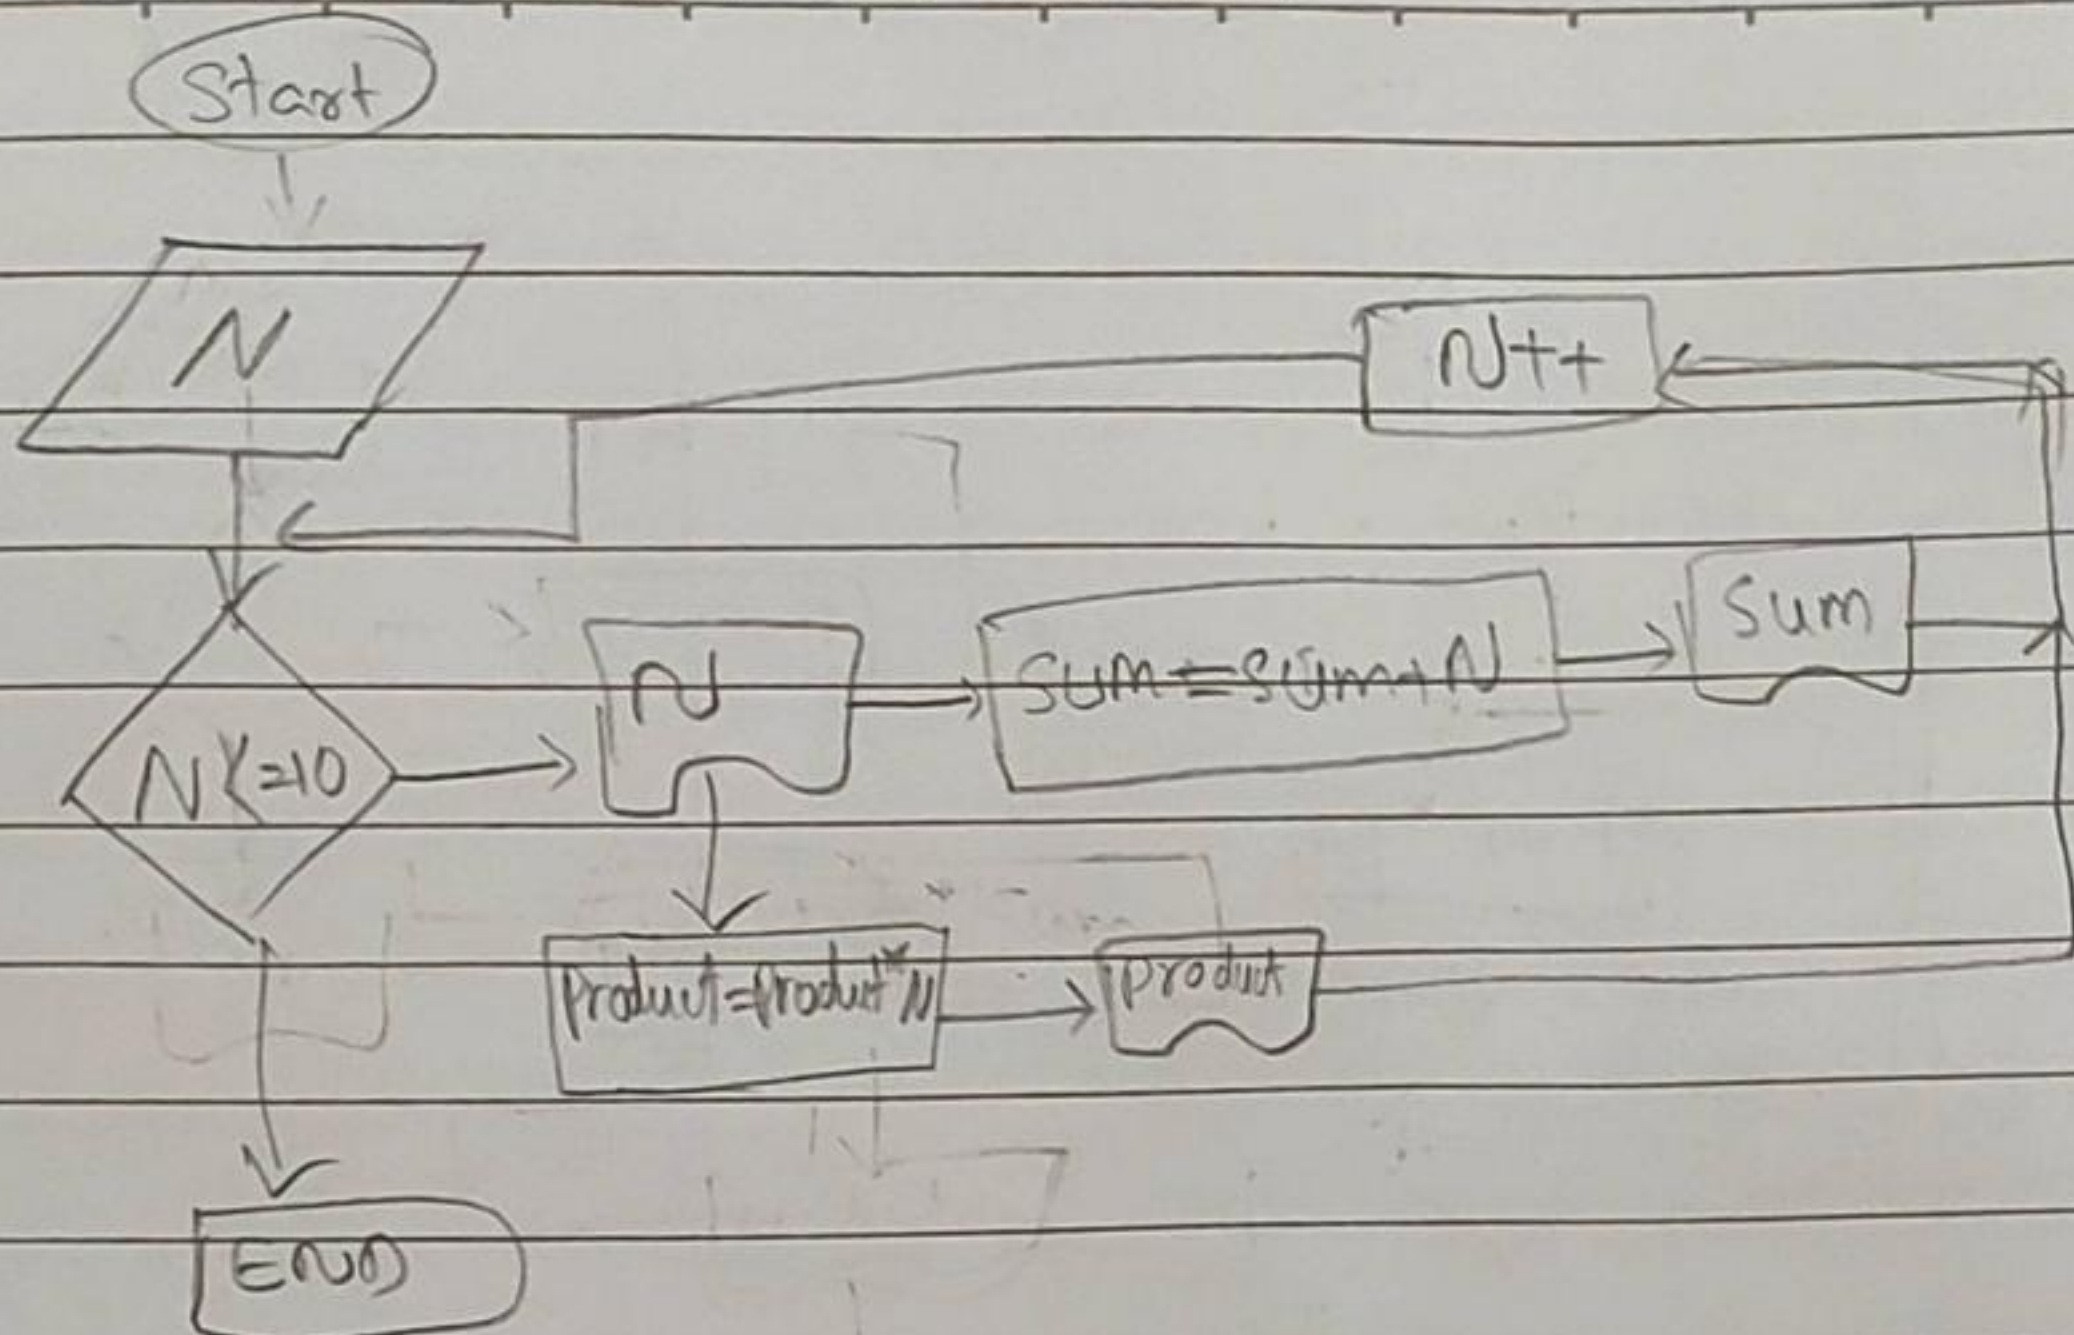 Start
N
N++
N<=10
N
Sum=Sum+N
Sum
Product=Product*N
Product
END